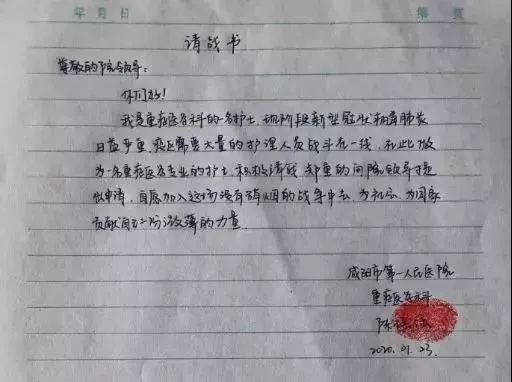 年 月 日 第 页
请战书
尊敬的院领导：
你们好！
我是重症医学科的一名护士，现阶段新型冠状病毒肺炎
日益严重，疫区需要大量的护理人员战斗在一线，在此做
为一名重症医学专业的护士，积极请战，郑重的向院领导提
出申请，自愿加入这场没有硝烟的战争中去，为社会、为国家
贡献自己一份微薄的力量。
咸阳市第一人民医院
重症医学科
陈
2020.01.23